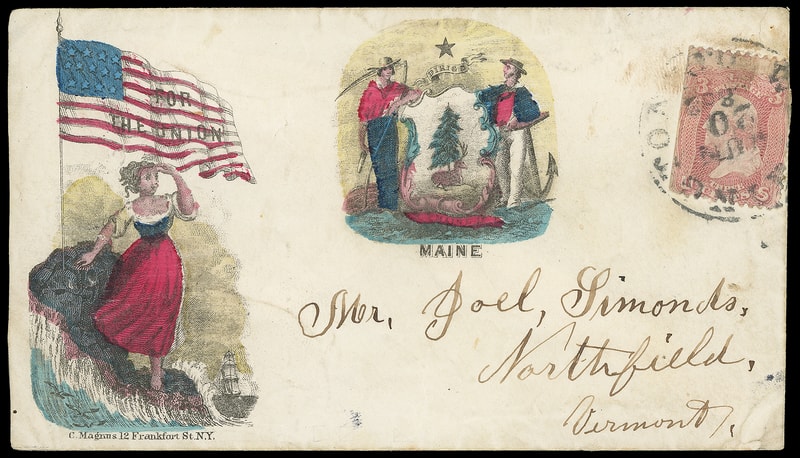 FOR
THE UNION
DIRIGO
MAINE
Mr. Joel, Simonds,
Northfield,
Vermont,
C. Magnus 12 Frankfort St. N.Y.